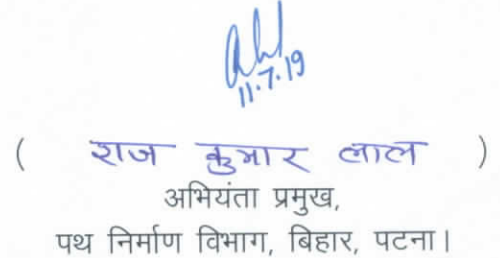 11.7.19
( राज कुमार लाल )
अभियंता प्रमुख,
पथ निर्माण विभाग, बिहार, पटना।